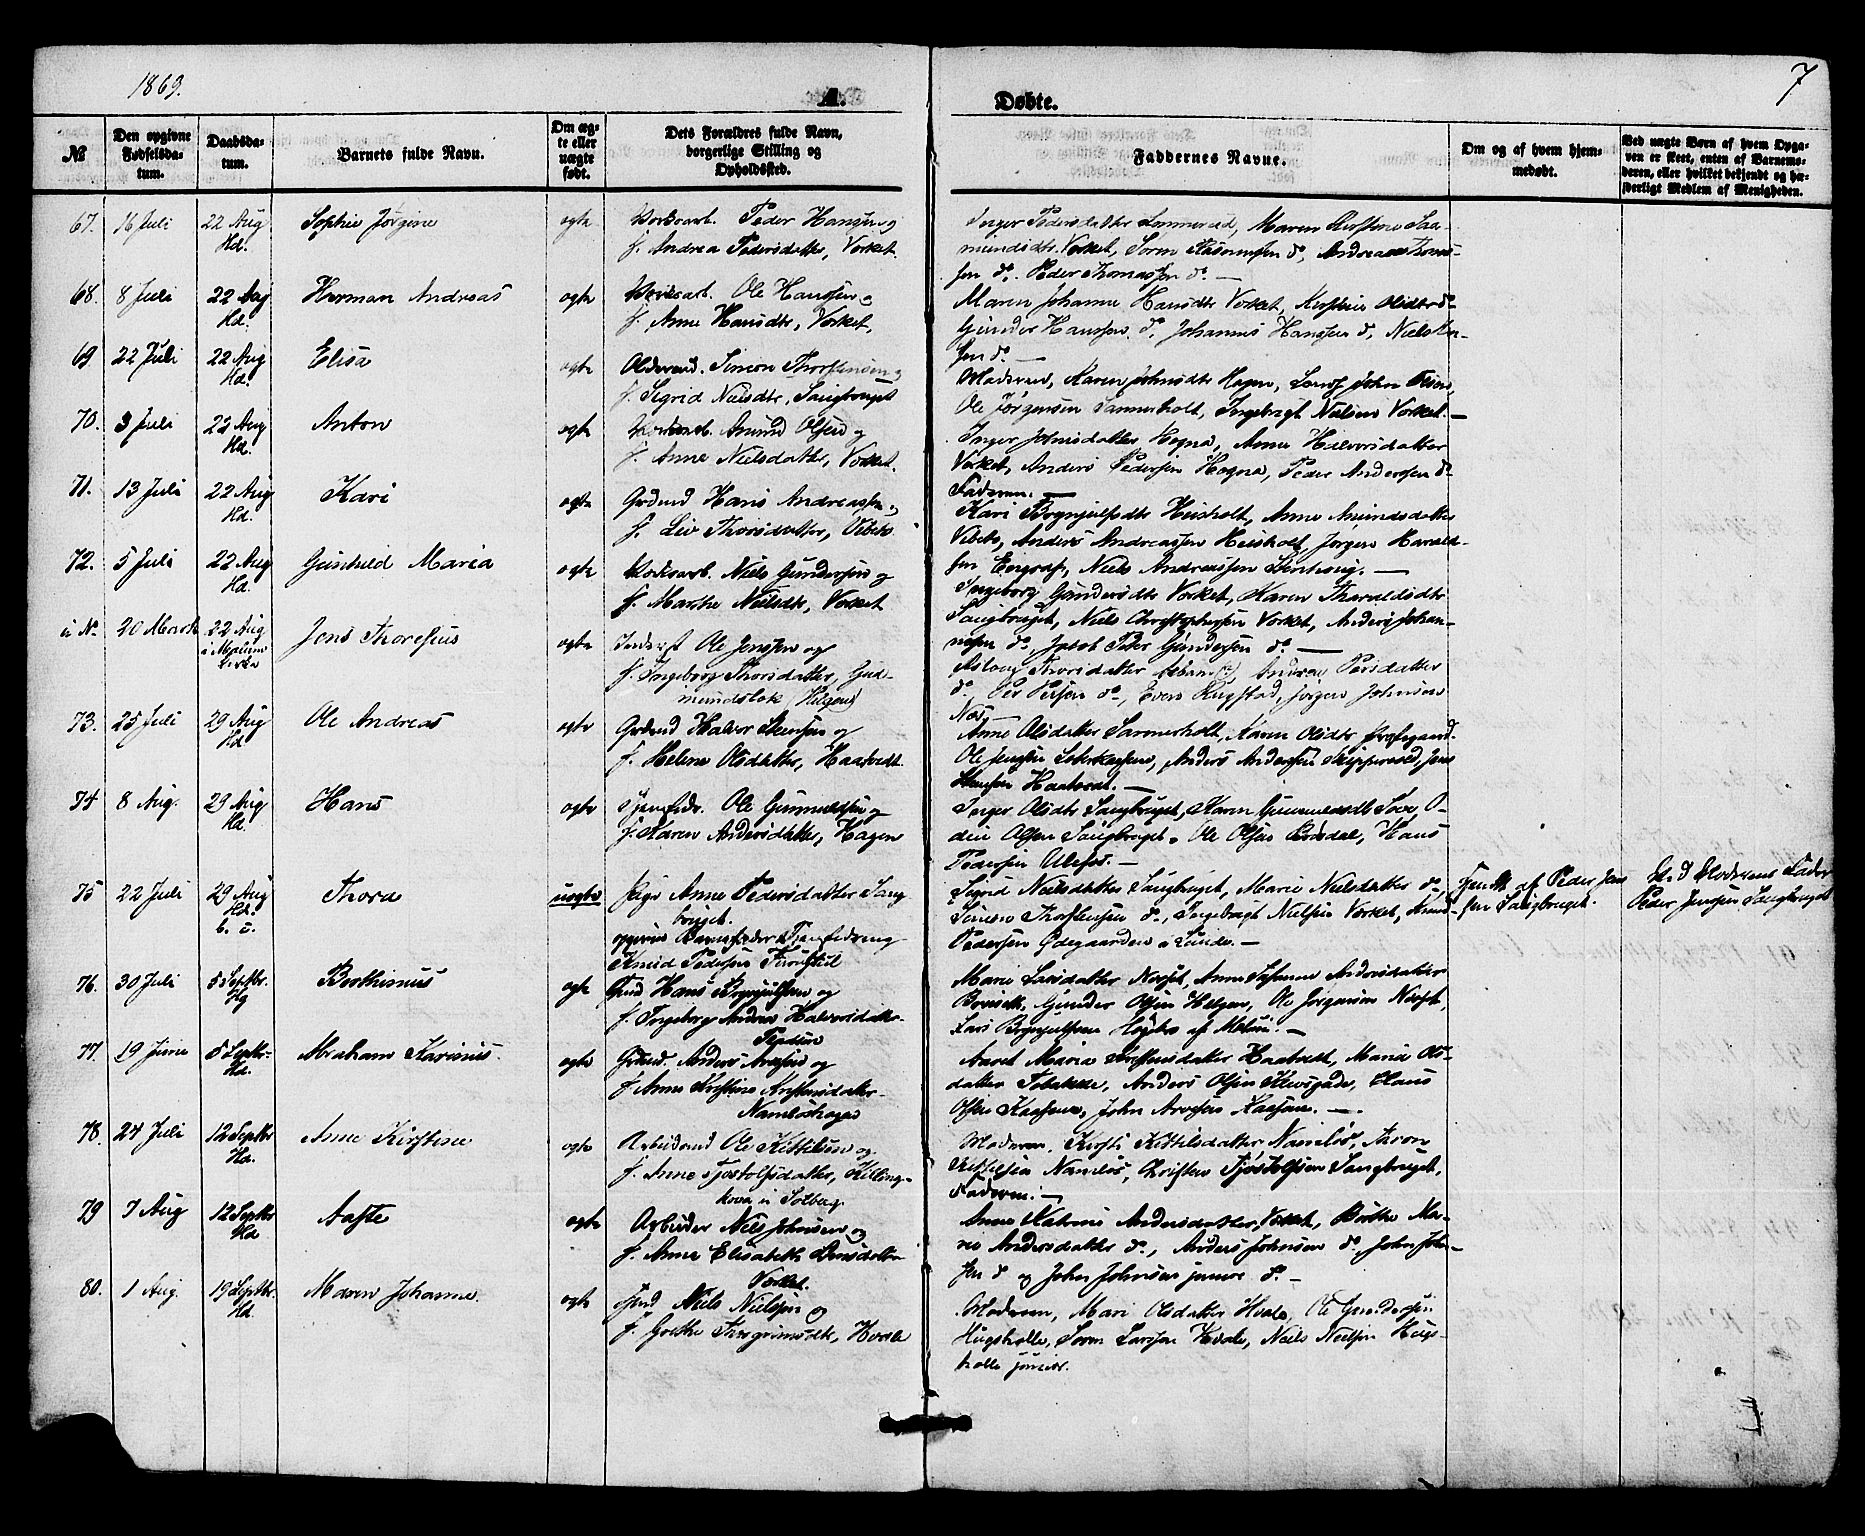 1869.
A.
Døbte.
7
№
Den opgivne Fødselsdatum.
Daabsdatum.
Barnets fulde Navn.
Om ægte eller uægte født.
Dets Forældres fulde Navn, borgerlige Stilling og Opholdssted.
Faddernes Navne.
Om og af hvem hjemmedøbt.
Ved uægte Børn af hvem Opgaven er skeet, enten af Barnemoderen, eller hvilket bekjendt og hæderligt Medlem af Menigheden.
67. 16 Juli 22 Aug Hd. Sophie Jørgine ægte
Værksarb. Peder Hansen og
f. Andrea Pedersdatter, Værket.
Inger Pedersdatter, Maren Kirstine
Værket, Søren do, Andreas
sen do. Peder Thomassen do. —
68. 8 Juli 22 Aug Hd. Herman Andreas ægte
Værksarb. Ole Hanssen og
f. Anne Hansdtr, Værket.
Maren Johanne Hansdtr Værket, Olsdtr do
Gunder Hanssen do, Johannes Hanssen do, Niels
sen do. —
69. 22 Juli 22 Aug Hd. Elisa ægte
Simon Thorstensen og
f. Sigrid Nielsdtr, Saugbruget
Moderen, Karen Johnsdtr Hagen, John Olsen,
Ole Jørgensen Sannerholt, Ingebregt Nielsen Værket. —
70. 3 Juli 22 Aug Hd. Anton ægte
Værksarb. Amund Olsen og
f. Anne Nielsdatter, Værket.
Inger Johnsdatter Hogna, Anne Halvorsdatter
Værket, Anders Pedersen Hogna, Peder Andersen do
Faderen. —
71. 13 Juli 22 Aug Hd. Kari ægte
Grdmd Hans Andreassen og
f. Liv Thorsdatter, Vibeto
Kari Brynjulfsdtr Heisholt, Anne Amundsdatter
Vibeto, Anders Andreassen Heisholt, Jørgen Harald-
sen, Niels Andreassen
72. 5 Juli 22 Aug Hd. Gunhild Maria ægte
Værksarb. Niels Gundersen og
f. Marthe Nielsdtr, Værket
Ingeborg Gundersdtr Værket, Karen Tharaldsdtr
Saugbruget, Niels Christophersen Værket, Anders Johan-
nesen do, Jacob Peter Gundersen do. —
u No 20 Marts 22 Aug i Melum Kirke Jens Thoresius ægte
Inderst Ole Jenssen og
f. Ingeborg Thorsdatter, Gud-
mundslok (Helgen)
Aslaug Thorsdatter, Andrea Persdatter
do, Per Persen do, Even Rugstad, Jørgen Johnsen
Næs. —
73. 25 Juli 29 Aug Hd Ole Andreas ægte
Grdmd Halvor Stensen og
f. Helene Olsdatter, Haatvedt.
Anne Olsdatter Sannerholt, Karen Olsdtr
Ole Jensen, Anders Andersen, Jens
Stensen Haatvedt. —
74 8 Aug. 29 Aug Hd. Hans ægte
Tjenestedr. Ole Gunnuldsen og
f. Karen Andersdatter, Hagen
Inger Olsdtr Saugbruget, Karen Gunnuldsdtr, O-
din Olsen Saugbruget, Ole Olsen, Hans
Pedersen Ulefos. —
75 22 Juli 29 Aug Hd. b. u. Thora uægte
Pige Anne Pedersdatter Saug-
bruget.
opgiven Barnefader
Knud Pedersen
Sigrid Nielsdatter Saugbruget, Marie Nielsdatter do,
Simon Thorstensen do, Ingebregt Nielsen Værket, Knud
Pedersen Ødegaarden i Lunde. —
Hjemdbt. af Peder Jens-
sen Saugbruget.
Ved Moderens Fader
Peder Jenssen Saugbruget
76. 30 Juli 5 Septbr. Hg Berthinius ægte
Grmd Hans Brynjulfsen og
f. Ingeborg Andrea Halvorsdatter
Marie Larsdatter Norset, Anne Susanne Andersdatter
Gunder Olsen Helgen, Ole Jørgensen Norset,
Lars Brynjulfsen af Melum. —
77. 19 Juni 5 Septbr. Hd. Abraham Karinius ægte
Grdmd. Anders Arvesen og
f. Anne Kirstine Kristensdatter
Namløshagen
Maria Kristensdatter Haatvedt, Maria Ols-
datter, Anders Olsen, Claus
Olsen Kaasene, John Arvesen Kaasene. —
78. 24 Juli 12 Septbr Hd. Anne Kirstine ægte
Arbeidsmd Ole Kittilsen og
f. Anne Tjøstolfsdatter, Killing-
kova u Solberg
Moderen, Kirsti Kittilsdatter Namløs, Aaron
Kittilsen Namløs, Christen Tjøstolfsen Saugbruget,
Faderen. —
79 7 Aug 12 Septbr Hd Aaste ægte
Arbeider Nils Johnsen og
f. Anne Elisabeth
Værket.
Anne Katrine Andersdatter, Værket, Birthe Ma-
rie Andersdatter do, Anders Johnsen do, John John-
sen do og John Johnsen junior do. —
80. 1 Aug. 19 Septbr. Hd. Maren Johanne. ægte
Niels Nielsen og
f. Grethe Thorgrimsdtr, Hvale
Moderen, Mari Olsdatter Hvale, Ole Gundersen
Hugstolle, Søren Larsen Hvale, Niels Nielsen Hug-
stolle junior.